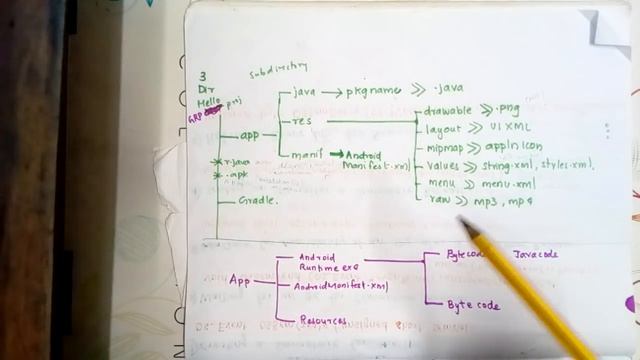 3
Dir
subdirectory
Hello prj
GRP
app
java → pkgname >> .java
res
manif → Android Manifest.xml
drawable >> .png
layout >> UI XML
mipmap >> appln icon
values >> string.xml, styles.xml
menu >> menu.xml
raw >> mp3, mp4
r.java
.apk
Gradle.
App
Android
Runtime exe
AndroidManifest.xml
Resources
Bytecode Javacode
Byte code